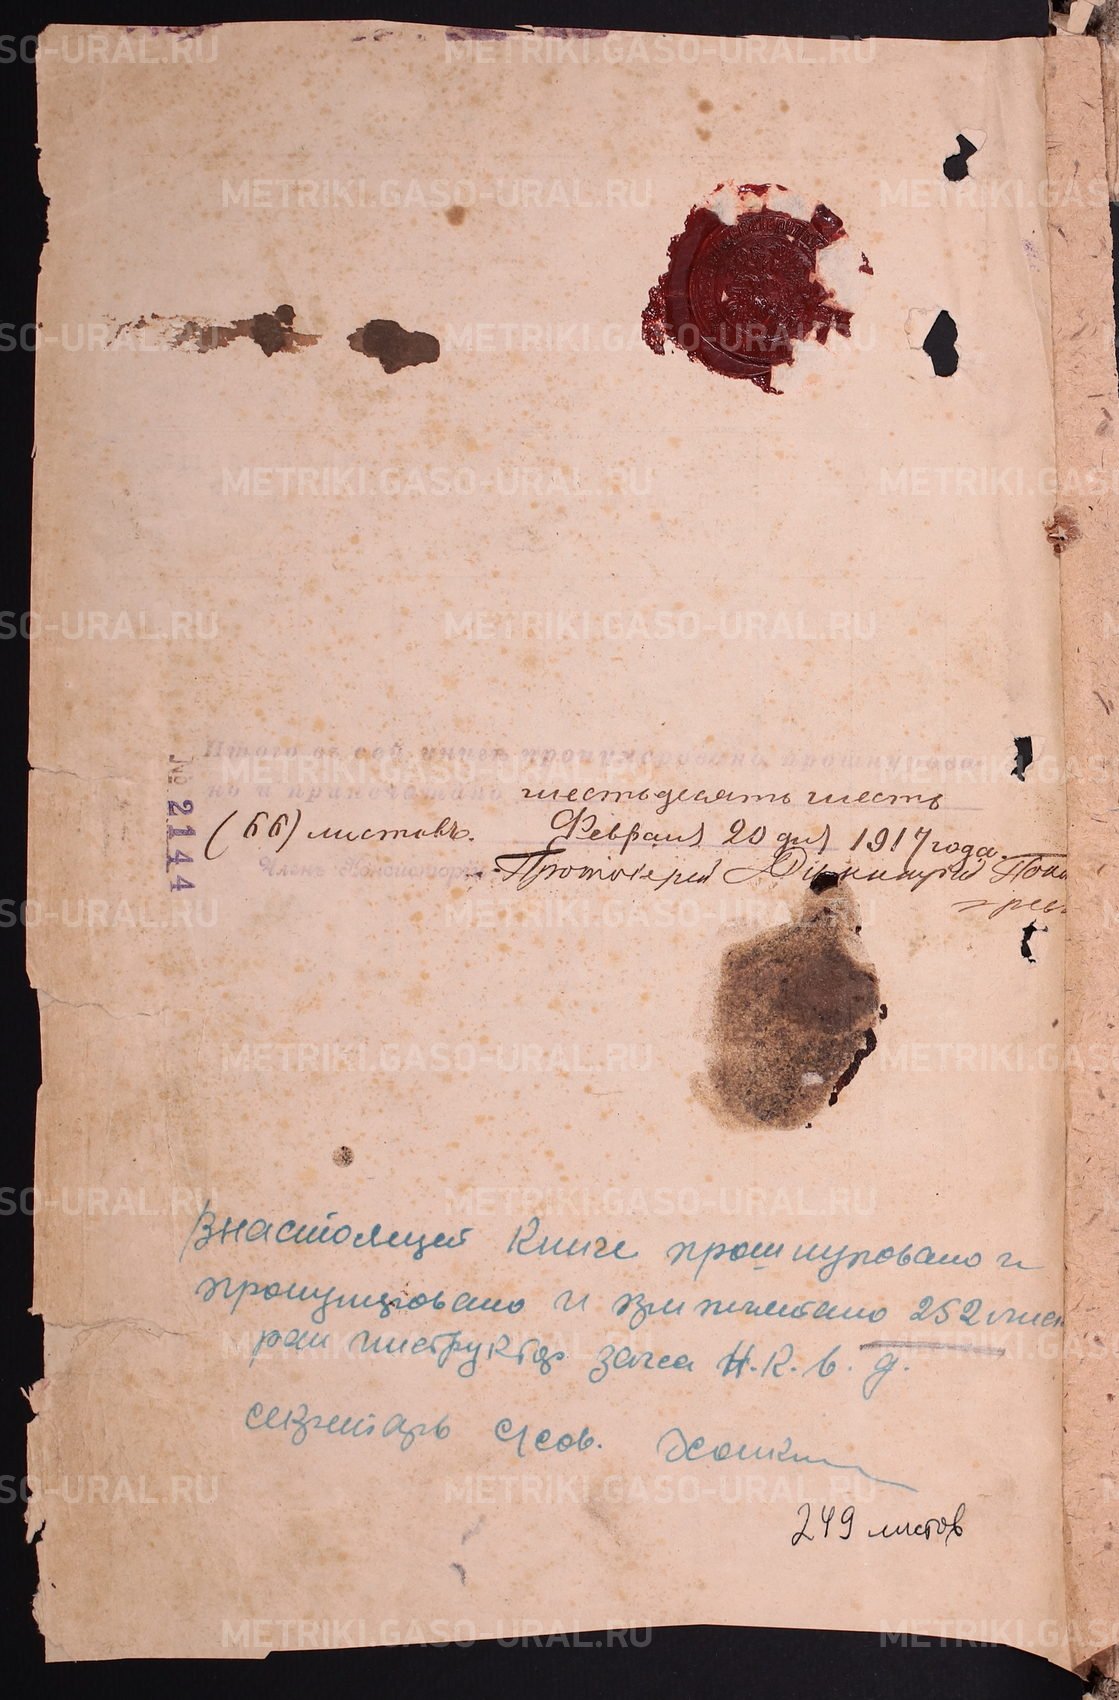 METRIKI.GASO-URAL.RU
Итого въ сей книгѣ пронумеровано прошнурова-
но и припечатано шестьдесятъ шесть
(66) листовъ. Февраля 20 дня 1917 года.
Членъ Консисторіи Протоіерей Димитрій
№ 2144
В настоящей Книге прошнуровано и
пронумеровано и 252 лис
рай инструктор загса Н.К.В.Д.
секретарь с/сов.
249 листов